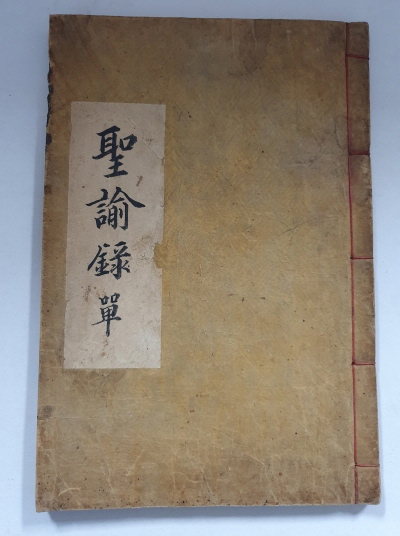 聖諭錄 單